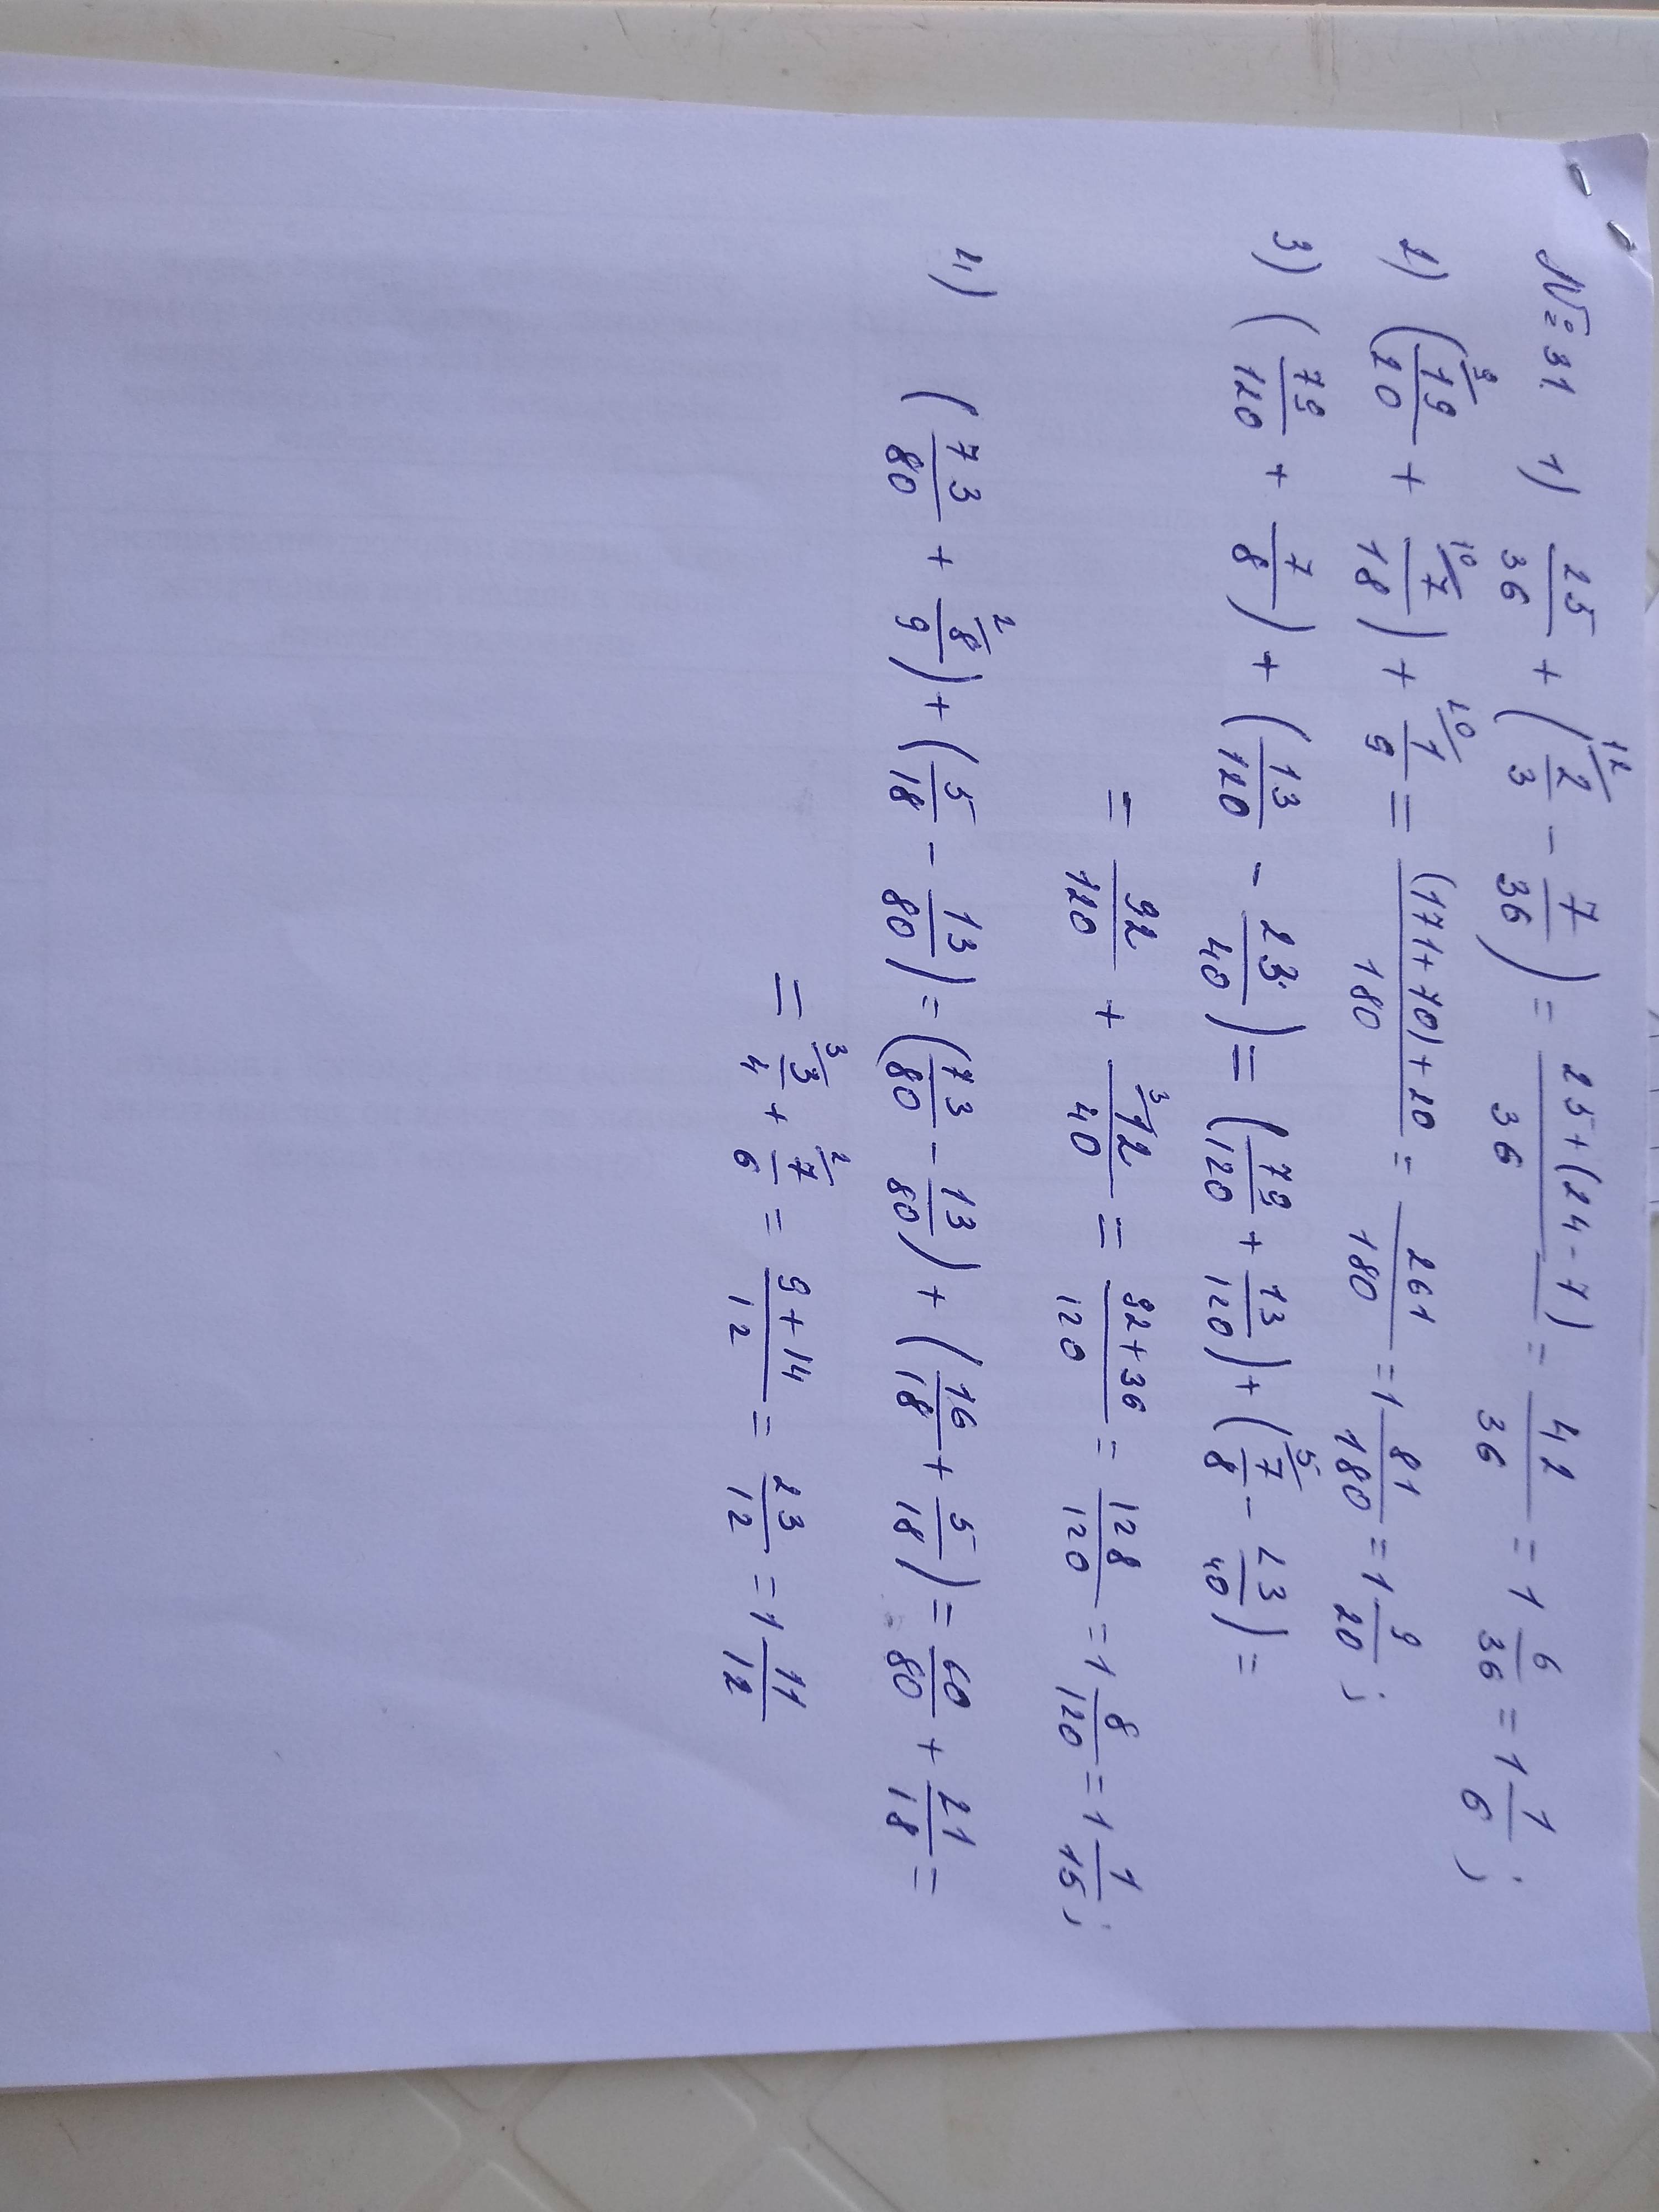 № 31 1) 25/36 + (2/3 12/ - 7/36) = (25+(24-7))/36 = 42/36 = 1 6/36 = 1 1/6 ;
2) (19/20 9/ + 7/18 10/) + 1/9 20/ = ((171+70)+20)/180 = 261/180 = 1 81/180 = 1 9/20 ;
3) (79/120 + 7/8) + (13/120 - 23/40) = (79/120 + 13/120) + (7/8 5/ - 23/40) =
= 92/120 + 12/40 3/ = (92+36)/120 = 128/120 = 1 8/120 = 1 1/15 ;
4) (73/80 + 8/9 2/) + (5/18 - 13/80) = (73/80 - 13/80) + (16/18 + 5/18) = 60/80 + 21/18 =
= 3/4 3/ + 7/6 2/ = (9+14)/12 = 23/12 = 1 11/12